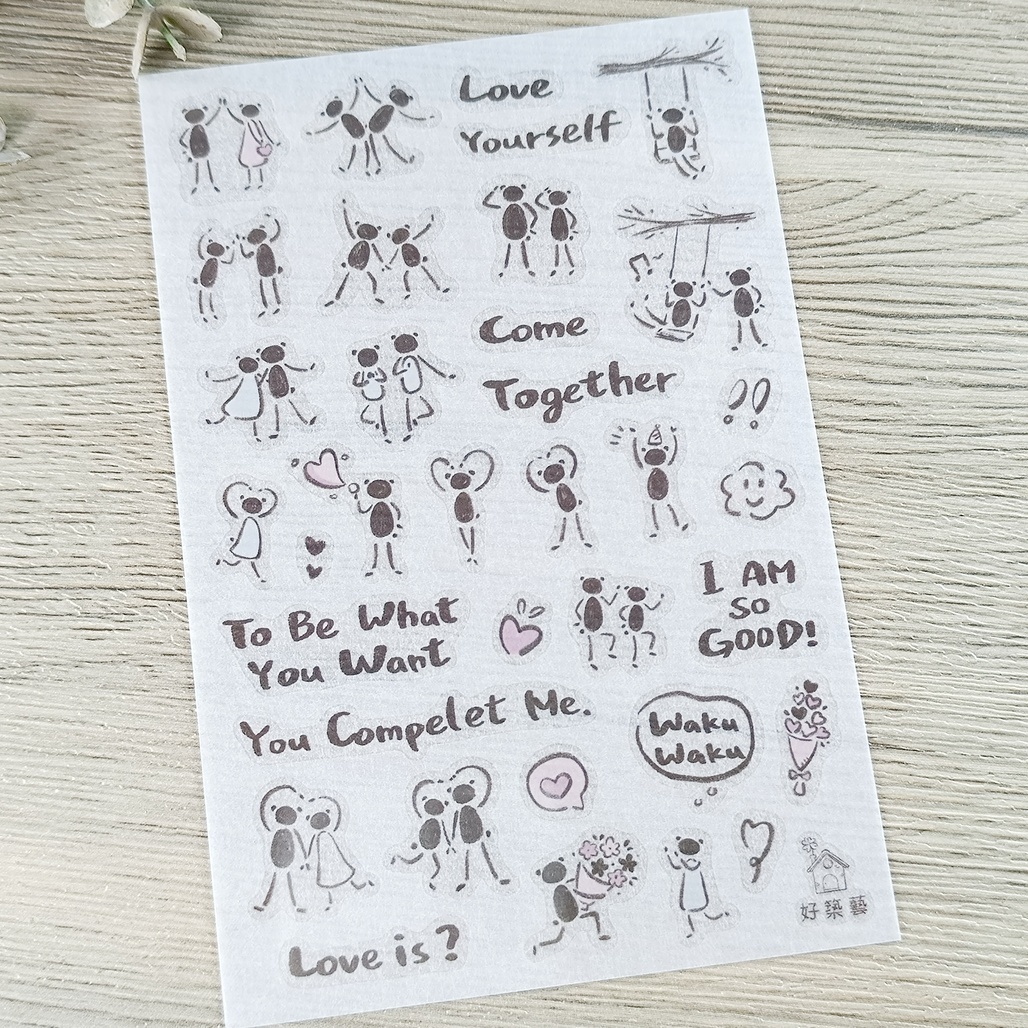 Love
Yourself
Come
Together
I AM
SO
GOOD!
To Be What
You Want
You Compelet Me.
Waku
Waku
好築藝
Love is?